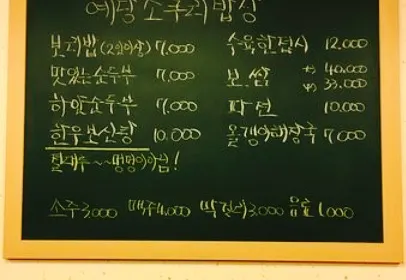 예당소쿠리밥상
보리밥(2인이상) 7,000
맛있는순두부 7,000
하얀순두부 7,000
한우보신탕 10,000
절대주~~멍멍이아님!
수육한접시 12,000
보쌈 大 40,000
小 33,000
파전 10,000
올갱이해장국 7,000
소주3,000 맥주4,000 막걸리3,000 음료1,000